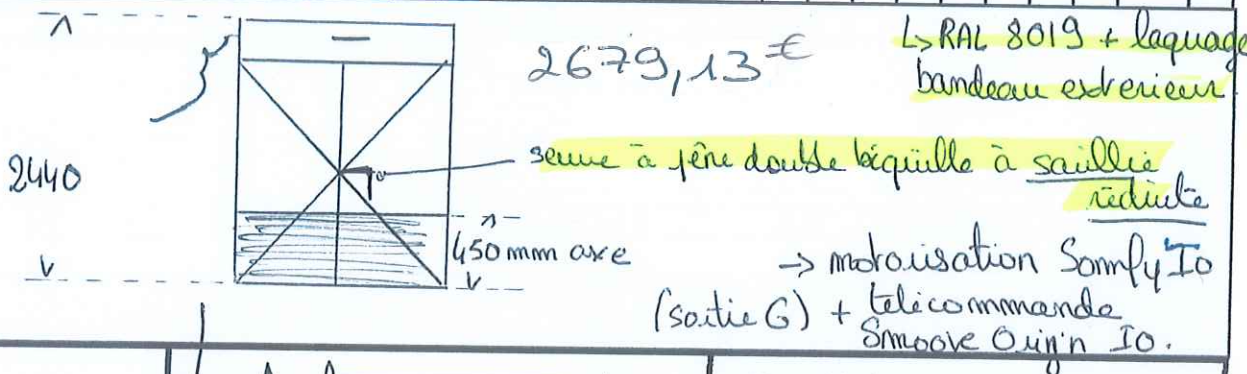 ↳ RAL 8019 + laquage
bandeau exterieur
2679,13 €
serrure à pêne double béquille à saillie
réduite
2440
450 mm axe
→ motorisation Somfy Io
(sortie G) + télécommande
Smoove Origin Io.